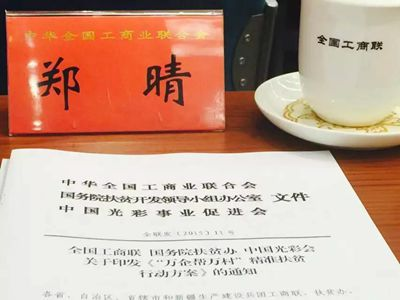 中华全国工商业联合会
郑晴
全国工商联
中华全国工商业联合会
国务院扶贫开发领导小组办公室 文件
中国光彩事业促进会
全联发〔2015〕11号
全国工商联 国务院扶贫办 中国光彩会
关于印发《“万企帮万村”精准扶贫
行动方案》的通知
各省、自治区、直辖市和新疆生产建设兵团工商联、扶贫办、